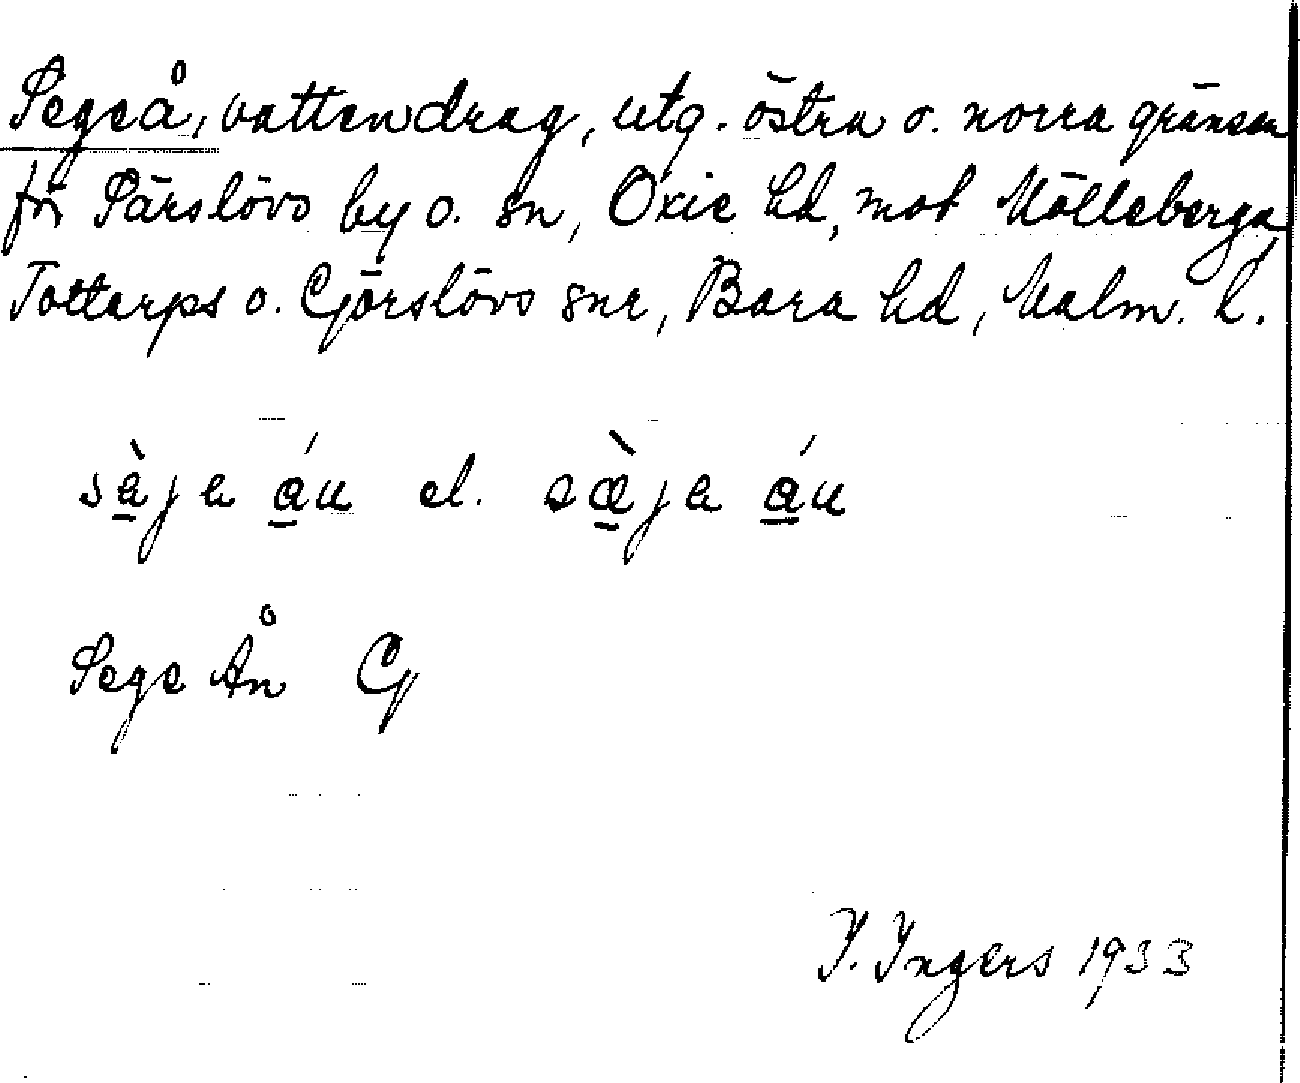 Segeå, vattendrag, utg. östra o. norra gränsen
för Särslövs by o. sn, Oxie hd, mot Mölleberga,
Tottarps o. Görslövs snr, Bara hd, Malm. l.
sàja áu el. sæ̀ja áu
Sege Ån G
I. Ingers 1933